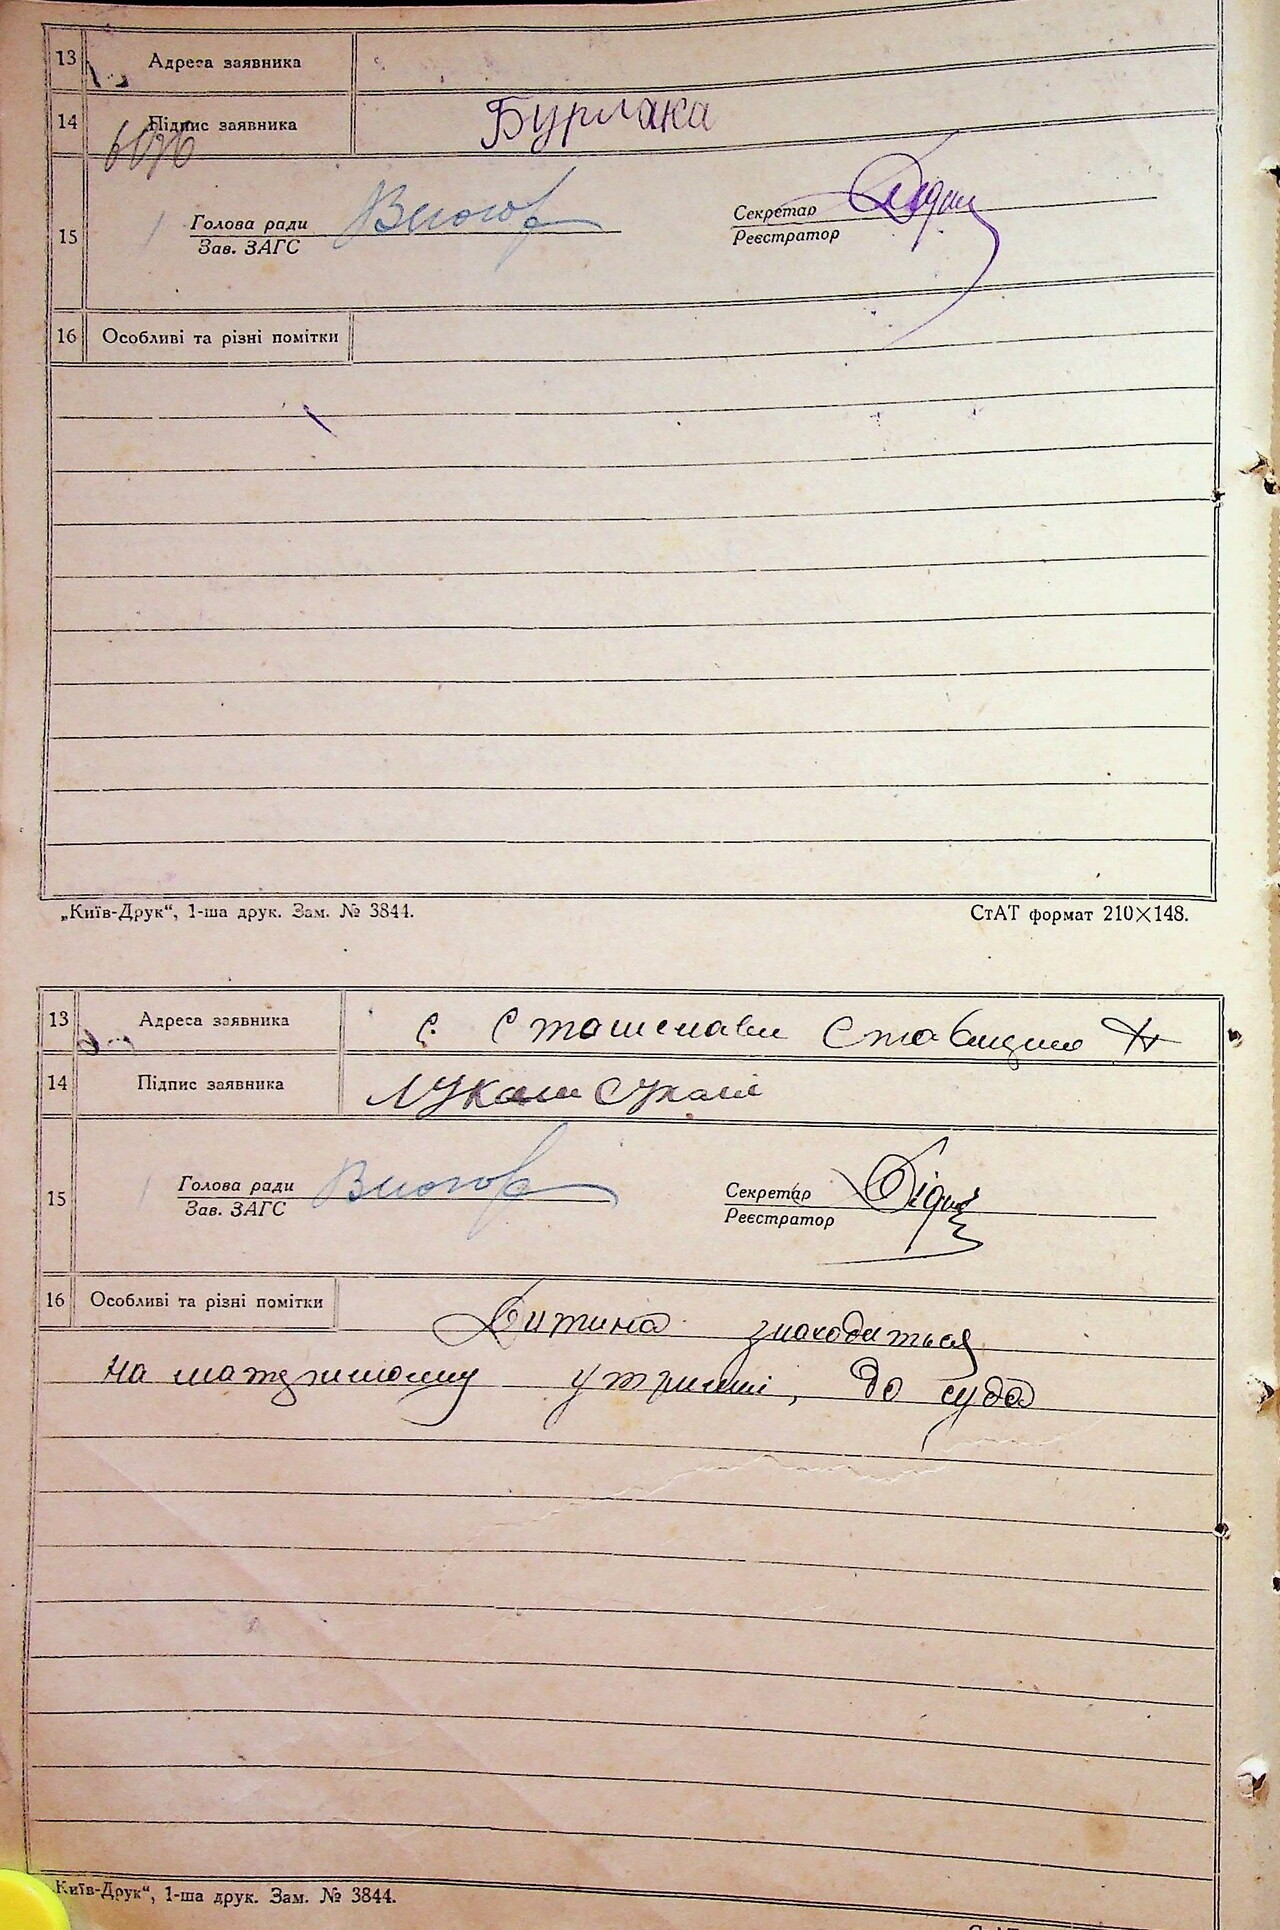 13 Адреса заявника
14 Підпис заявника Бурлака
15 Голова ради
Зав. ЗАГС
Секретар
Реєстратор
16 Особливі та різні помітки
„Київ-Друк“, 1-ша друк. Зам. № 3844. СтАТ формат 210×148.
13 Адреса заявника с.
14 Підпис заявника
15 Голова ради
Зав. ЗАГС
Секретар
Реєстратор
16 Особливі та різні помітки Дитина знаходиться
на утриманні, до суда
„Київ-Друк“, 1-ша друк. Зам. № 3844.